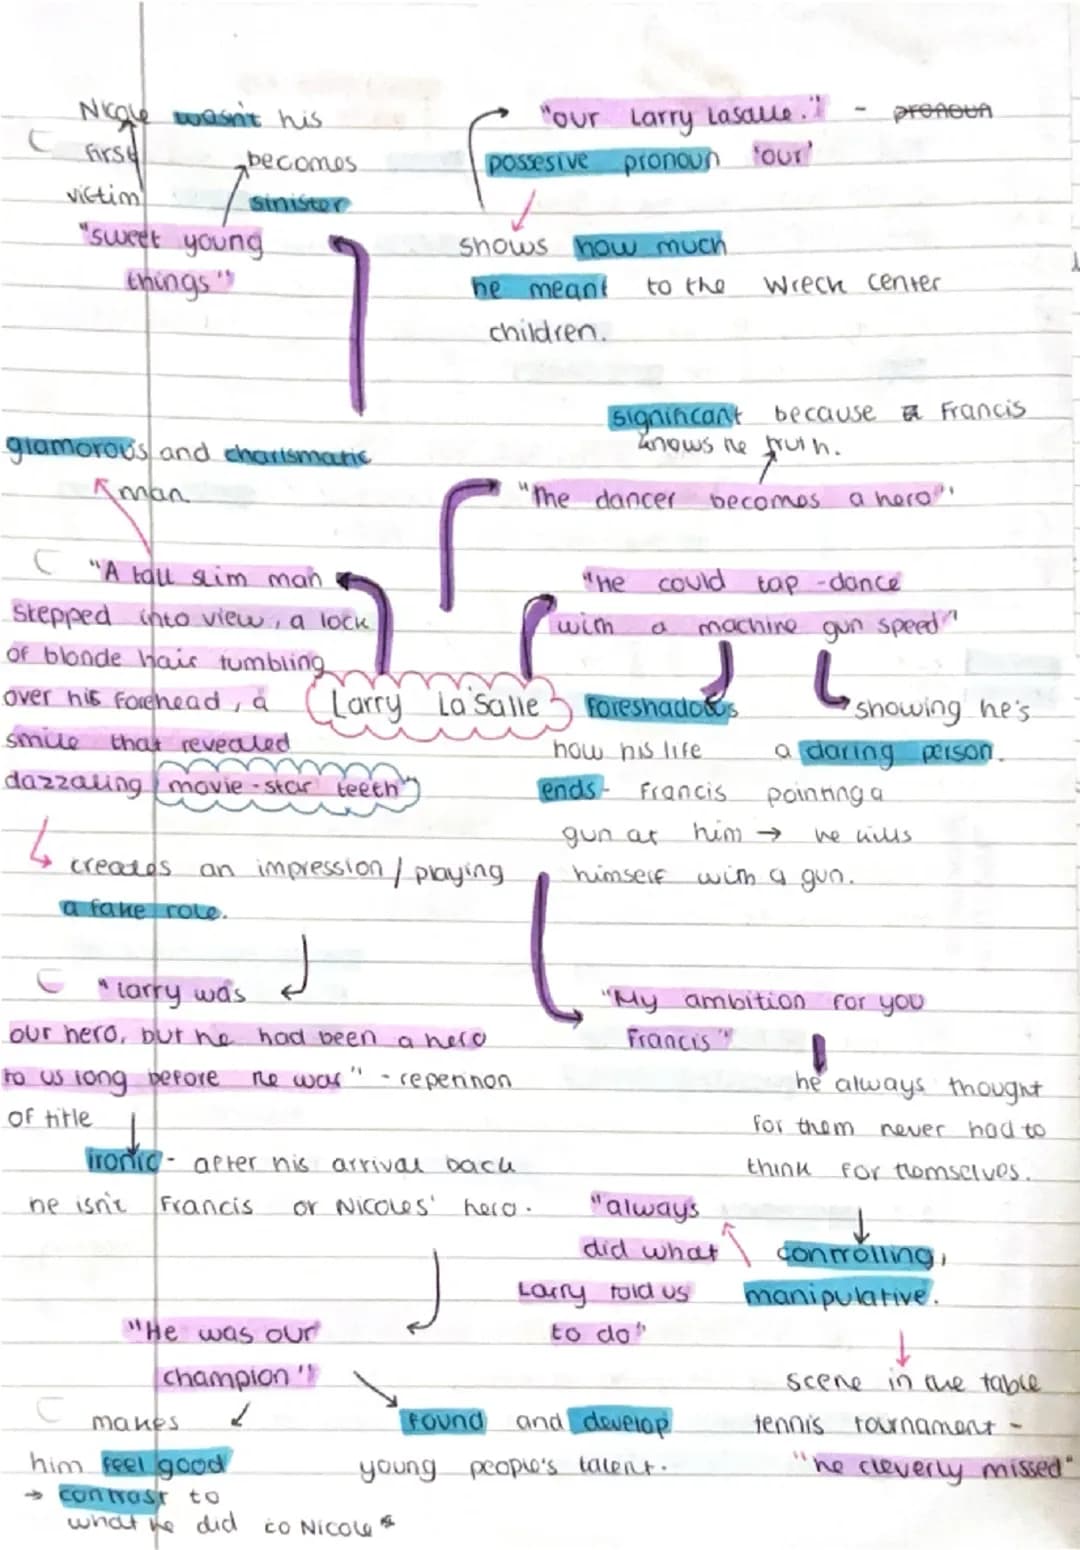 Nicole wasn't his
first
victim
becomes
sinister
"sweet young
things"
"our Larry Lasalle." - pronoun
possesive pronoun 'our'
shows how much
he meant to the Wreck center
children.
significant because Francis
knows he truth.
"The dancer becomes a hero"
glamorous and charismatic
man
"A tall slim man
stepped into view, a lock
of blonde hair tumbling
over his forehead, a
smile that revealed
dazzaling movie-star teeth"
creates an impression / playing
a fake role.
Larry La'Salle
"He could tap-dance
with a machine gun speed"
foreshadows
how his life
ends- Francis pointing a
gun at him → he kills
himself with a gun.
showing he's
a daring person.
"Larry was
our hero, but he had been a hero
to us long before he was" - repetition
of title
ironic - after his arrival back
he isn't Francis or Nicoles' hero.
"My ambition for you
Francis"
he always thought
for them never had to
think for themselves.
"always
did what
Larry told us
to do"
controlling,
manipulative.
scene in the table
tennis tournament -
"he cleverly missed"
"He was our
champion"
makes
him feel good
→ contrast to
what he did to Nicole *
found and develop
young people's talent.